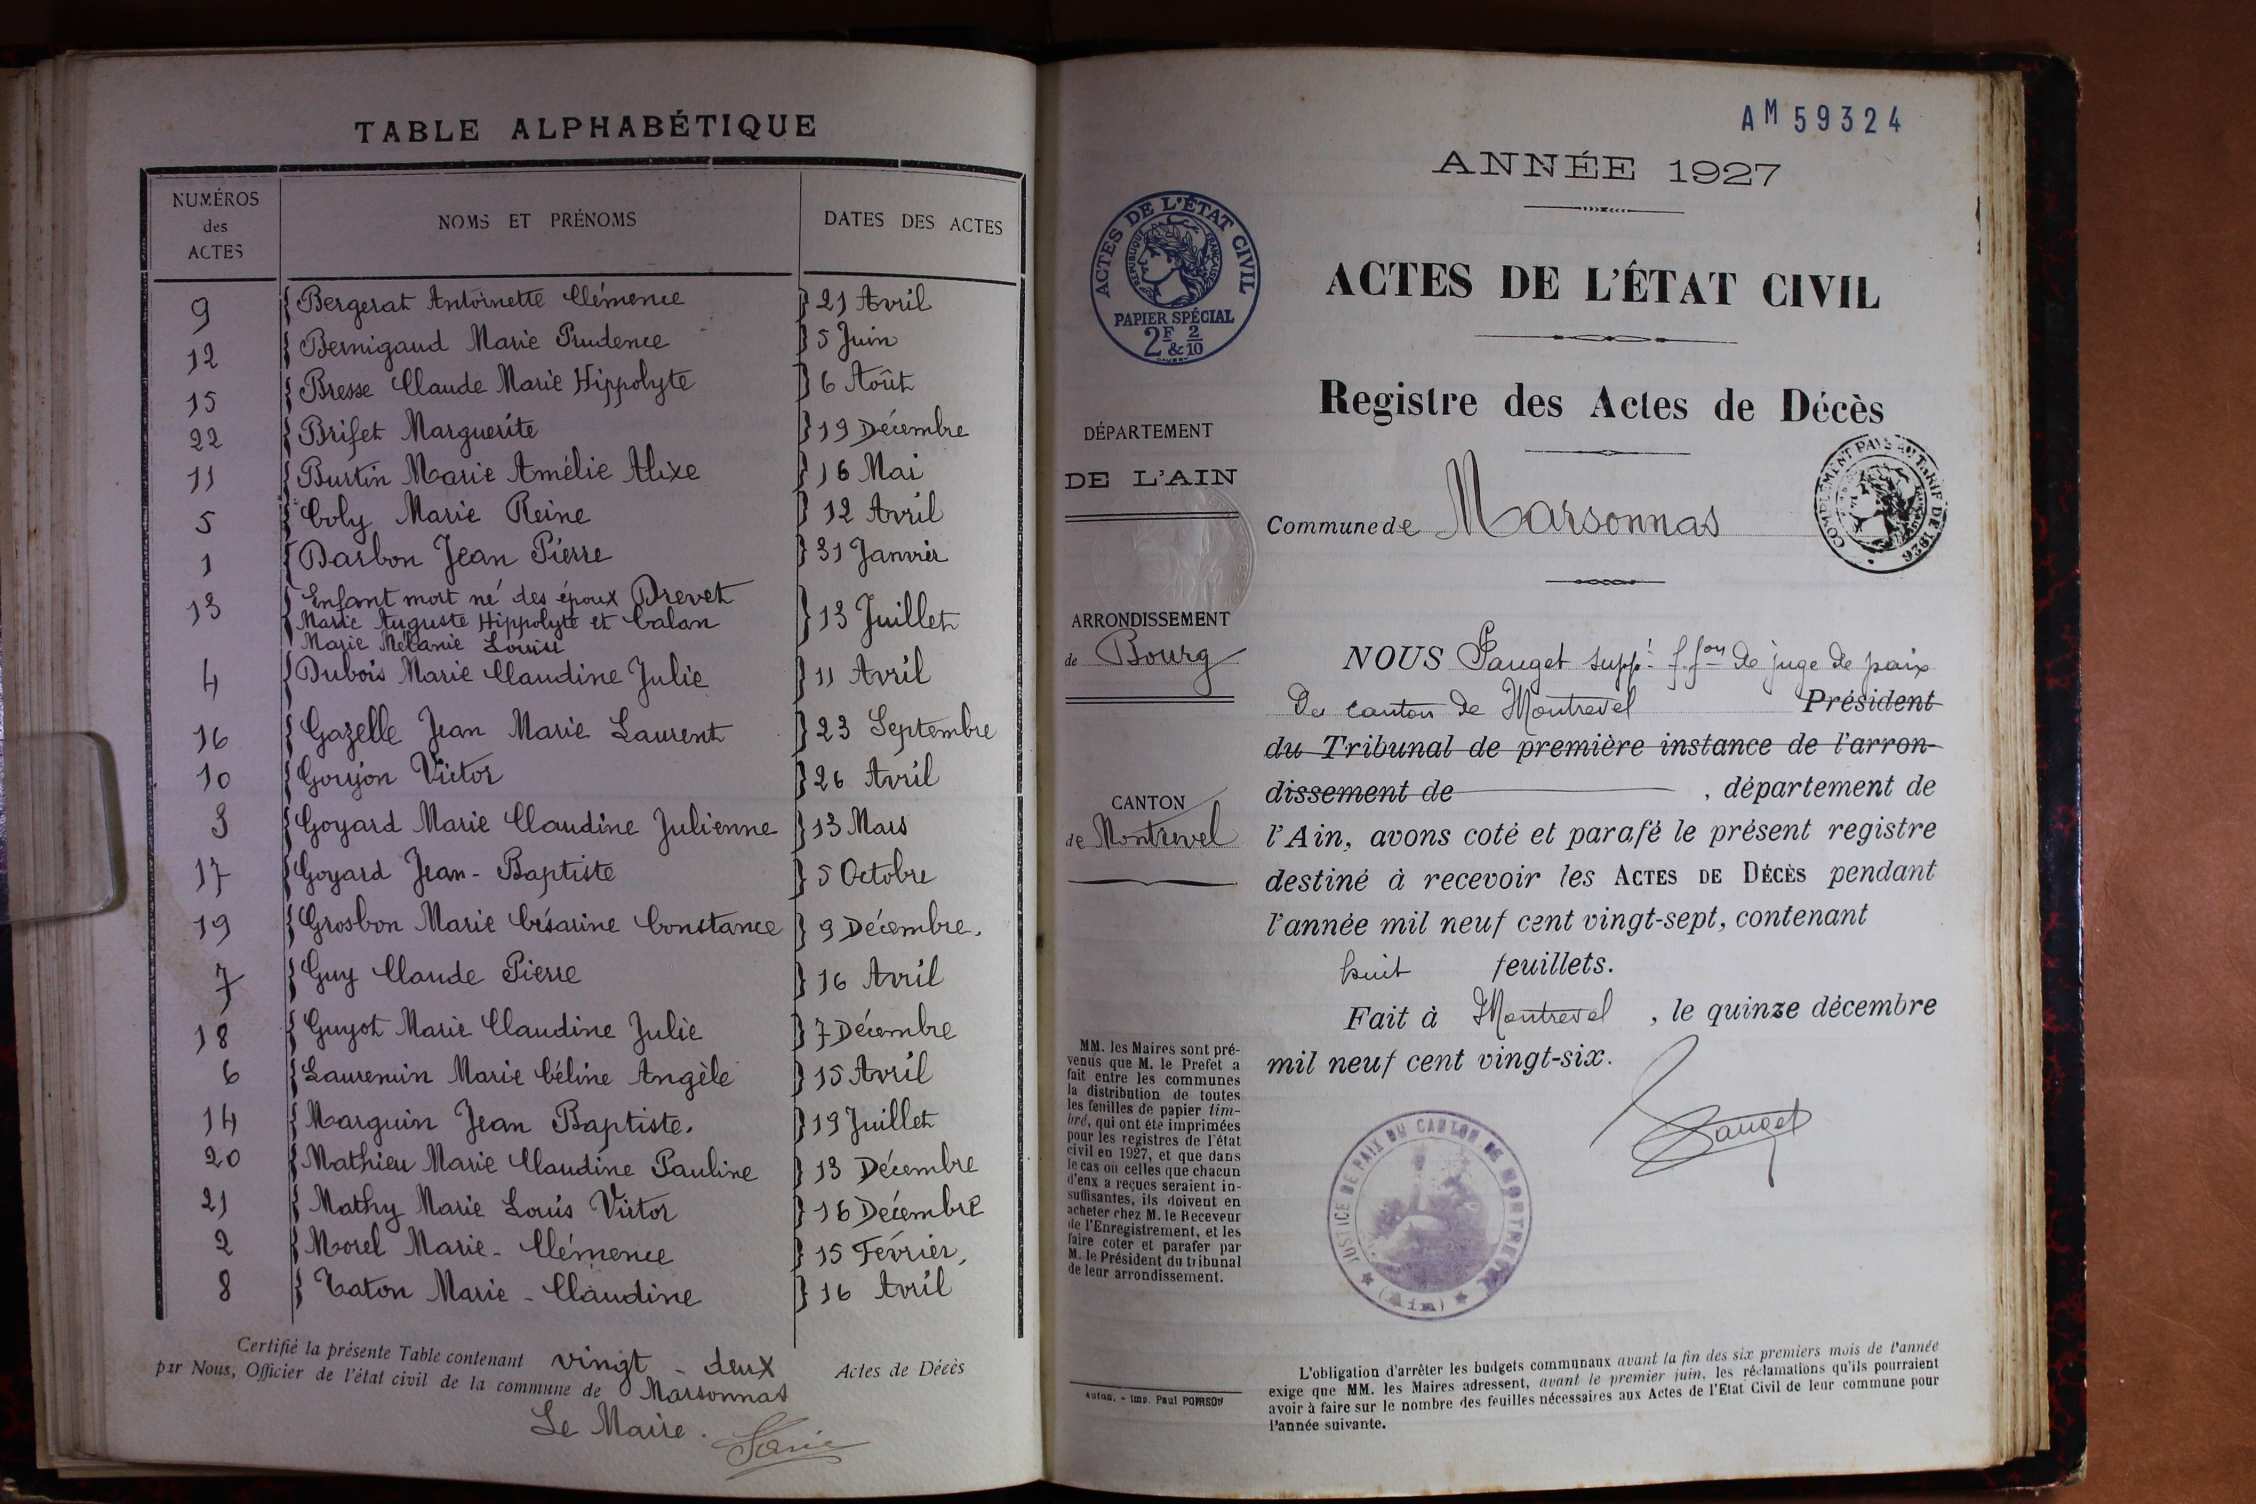 TABLE ALPHABÉTIQUE
NUMÉROS des ACTES NOMS ET PRÉNOMS DATES DES ACTES
9 Bergerat Antoinette Clémence 21 Avril
12 Bernigaud Marie Prudence 5 Juin
15 Bresse Claude Marie Hippolyte 6 Août
22 Brifet Marguerite 19 Décembre
11 Burtin Marie Amélie Alixe 16 Mai
5 Coly Marie Reine 12 Avril
1 Darbon Jean Pierre 31 Janvier
13 Enfant mort né des époux Drevet
Marie Auguste Hippolyte et Calan 13 Juillet
Marie Mélanie Louise
4 Dubois Marie Claudine Julie 11 Avril
16 Gazelle Jean Marie Laurent 23 Septembre
10 Goujon Victor 26 Avril
3 Goyard Marie Claudine Julienne 13 Mars
17 Goyard Jean-Baptiste 5 Octobre
19 Grosbon Marie Césarine Constance 9 Décembre.
7 Guy Claude Pierre 16 Avril
18 Guyot Marie Claudine Julie 7 Décembre
6 Laurencin Marie Céline Angèle 15 Avril
14 Marguin Jean Baptiste. 19 Juillet
20 Mathieu Marie Claudine Pauline 13 Décembre
21 Mathy Marie Louis Victor 16 Décembre
2 Morel Marie-Clémence 15 Février,
8 Taton Marie-Claudine 16 Avril
Certifié la présente Table contenant vingt-deux Actes de Décès
par Nous, Officier de l'état civil de la commune de Marsonnas
Le Maire.
AM 59324
ANNÉE 1927
ACTES DE L'ÉTAT CIVIL
RÉPUBLIQUE FRANÇAISE
PAPIER SPÉCIAL
2F & 2/10
ACTES DE L'ÉTAT CIVIL
Registre des Actes de Décès
DÉPARTEMENT
DE L'AIN
Commune de Marsonnas
COMPLÉMENT PAYÉ AU TARIF DE 1926
ARRONDISSEMENT
de Bourg
CANTON
de Montrevel
NOUS Pauget supp.t f.fon de juge de paix
Du canton de Montrevel Président
du Tribunal de première instance de l'arron-
dissement de , département de
l'Ain, avons coté et parafé le présent registre
destiné à recevoir les ACTES DE DÉCÈS pendant
l'année mil neuf cent vingt-sept, contenant
huit feuillets.
Fait à Montrevel , le quinze décembre
mil neuf cent vingt-six.
Pauget
JUSTICE DE PAIX DU CANTON DE MONTREVEL
(Ain)
MM. les Maires sont pré-
venus que M. le Prefet a
fait entre les communes
la distribution de toutes
les feuilles de papier tim-
bré, qui ont été imprimées
pour les registres de l'état
civil en 1927, et que dans
le cas où celles que chacun
d'enx a reçues seraient in-
suffisantes, ils doivent en
acheter chez M. le Receveur
de l'Enregistrement, et les
faire coter et parafer par
M. le Président du tribunal
de leur arrondissement.
Autun. - Imp. Paul POIRSON
L'obligation d'arrêter les budgets communaux avant la fin des six premiers mois de l'année
exige que MM. les Maires adressent, avant le premier juin, les réclamations qu'ils pourraient
avoir à faire sur le nombre des feuilles nécessaires aux Actes de l'Etat Civil de leur commune pour
l'année suivante.